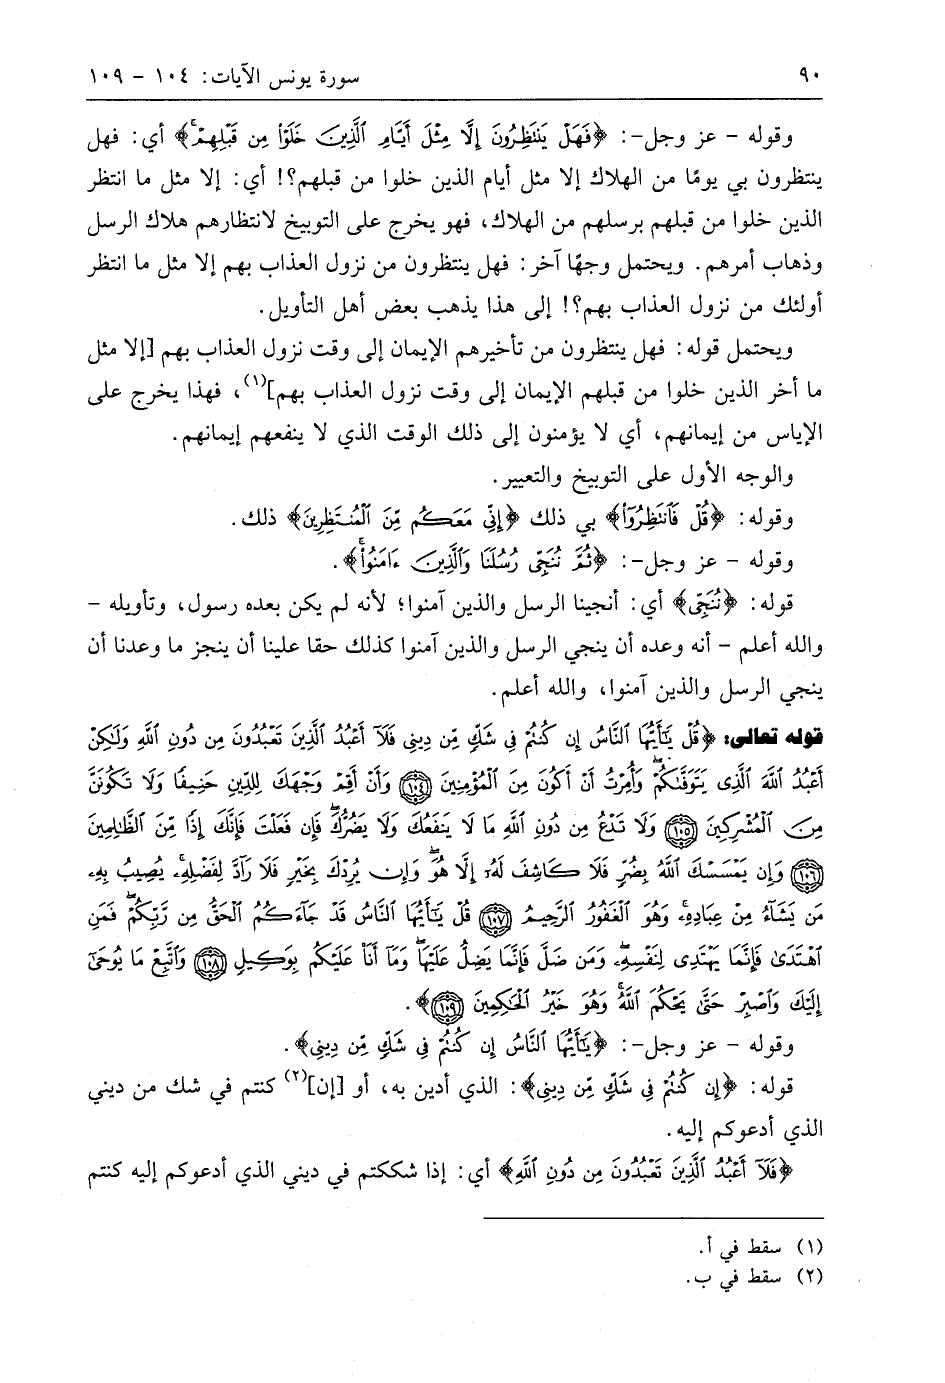 ٩٠ سورة يونس الآيات: ١٠٤ - ١٠٩
وقوله - عز وجل-: ﴿فَهَلْ يَنتَظِرُونَ إِلَّا مِثْلَ أَيَّامِ الَّذِينَ خَلَوْا مِن قَبْلِهِمْ﴾ أي: فهل
ينتظرون بي يومًا من الهلاك إلا مثل أيام الذين خلوا من قبلهم؟! أي: إلا مثل ما انتظر
الذين خلوا من قبلهم برسلهم من الهلاك، فهو يخرج على التوبيخ لانتظارهم هلاك الرسل
وذهاب أمرهم. ويحتمل وجهًا آخر: فهل ينتظرون من نزول العذاب بهم إلا مثل ما انتظر
أولئك من نزول العذاب بهم؟! إلى هذا يذهب بعض أهل التأويل.
ويحتمل قوله: فهل ينتظرون من تأخيرهم الإيمان إلى وقت نزول العذاب بهم [إلا مثل
ما أخر الذين خلوا من قبلهم الإيمان إلى وقت نزول العذاب بهم](١)، فهذا يخرج على
الإياس من إيمانهم، أي لا يؤمنون إلى ذلك الوقت الذي لا ينفعهم إيمانهم.
والوجه الأول على التوبيخ والتعيير.
وقوله: ﴿قُلْ فَٱنتَظِرُوٓا۟﴾ بي ذلك ﴿إِنِّى مَعَكُم مِّنَ ٱلْمُنتَظِرِينَ﴾ ذلك.
وقوله - عز وجل-: ﴿ثُمَّ نُنَجِّى رُسُلَنَا وَٱلَّذِينَ ءَامَنُوا۟ۚ﴾.
قوله: ﴿نُنَجِّى﴾ أي: أنجينا الرسل والذين آمنوا؛ لأنه لم يكن بعده رسول، وتأويله -
والله أعلم - أنه وعده أن ينجي الرسل والذين آمنوا كذلك حقا علينا أن ينجز ما وعدنا أن
ينجي الرسل والذين آمنوا، والله أعلم.
قوله تعالى: ﴿قُلْ يَٰٓأَيُّهَا ٱلنَّاسُ إِن كُنتُمْ فِى شَكٍّ مِّن دِينِى فَلَآ أَعْبُدُ ٱلَّذِينَ تَعْبُدُونَ مِن دُونِ ٱللَّهِ وَلَٰكِنْ
أَعْبُدُ ٱللَّهَ ٱلَّذِى يَتَوَفَّىٰكُمْ ۖ وَأُمِرْتُ أَنْ أَكُونَ مِنَ ٱلْمُؤْمِنِينَ ١٠٤ وَأَنْ أَقِمْ وَجْهَكَ لِلدِّينِ حَنِيفًا وَلَا تَكُونَنَّ
مِنَ ٱلْمُشْرِكِينَ ١٠٥ وَلَا تَدْعُ مِن دُونِ ٱللَّهِ مَا لَا يَنفَعُكَ وَلَا يَضُرُّكَ ۖ فَإِن فَعَلْتَ فَإِنَّكَ إِذًا مِّنَ ٱلظَّٰلِمِينَ
١٠٦ وَإِن يَمْسَسْكَ ٱللَّهُ بِضُرٍّ فَلَا كَاشِفَ لَهُۥٓ إِلَّا هُوَ ۖ وَإِن يُرِدْكَ بِخَيْرٍ فَلَا رَآدَّ لِفَضْلِهِۦ ۚ يُصِيبُ بِهِۦ
مَن يَشَآءُ مِنْ عِبَادِهِۦ ۚ وَهُوَ ٱلْغَفُورُ ٱلرَّحِيمُ ١٠٧ قُلْ يَٰٓأَيُّهَا ٱلنَّاسُ قَدْ جَآءَكُمُ ٱلْحَقُّ مِن رَّبِّكُمْ ۖ فَمَنِ
ٱهْتَدَىٰ فَإِنَّمَا يَهْتَدِى لِنَفْسِهِۦ ۖ وَمَن ضَلَّ فَإِنَّمَا يَضِلُّ عَلَيْهَا ۖ وَمَآ أَنَا۠ عَلَيْكُم بِوَكِيلٍ ١٠٨ وَٱتَّبِعْ مَا يُوحَىٰٓ
إِلَيْكَ وَٱصْبِرْ حَتَّىٰ يَحْكُمَ ٱللَّهُ ۚ وَهُوَ خَيْرُ ٱلْحَٰكِمِينَ ١٠٩﴾.
وقوله - عز وجل-: ﴿يَٰٓأَيُّهَا ٱلنَّاسُ إِن كُنتُمْ فِى شَكٍّ مِّن دِينِى﴾.
قوله: ﴿إِن كُنتُمْ فِى شَكٍّ مِّن دِينِى﴾: الذي أدين به، أو [إن](٢) كنتم في شك من ديني
الذي أدعوكم إليه.
﴿فَلَآ أَعْبُدُ ٱلَّذِينَ تَعْبُدُونَ مِن دُونِ ٱللَّهِ﴾ أي: إذا شككتم في ديني الذي أدعوكم إليه كنتم
(١) سقط في أ.
(٢) سقط في ب.